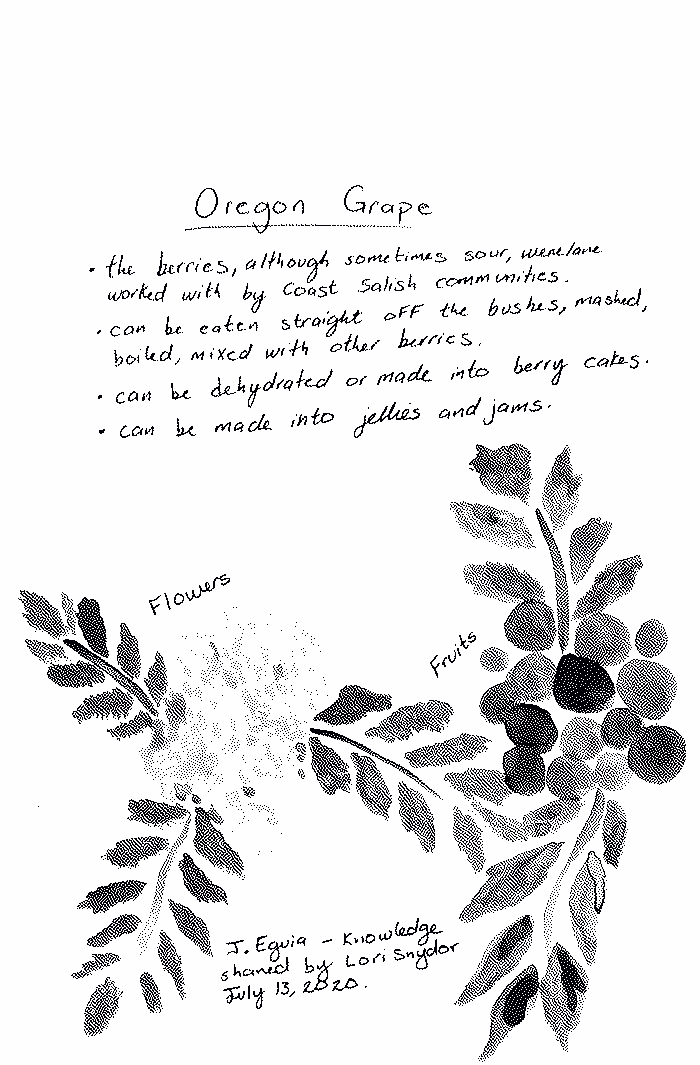 Oregon Grape
• the berries, although sometimes sour, were/are
worked with by Coast Salish communities.
• can be eaten straight off the bushes, mashed,
boiled, mixed with other berries.
• can be dehydrated or made into berry cakes.
• can be made into jellies and jams.
Flowers
Fruits
J. Eguia - Knowledge
shared by Lori Snyder
July 13, 2020.